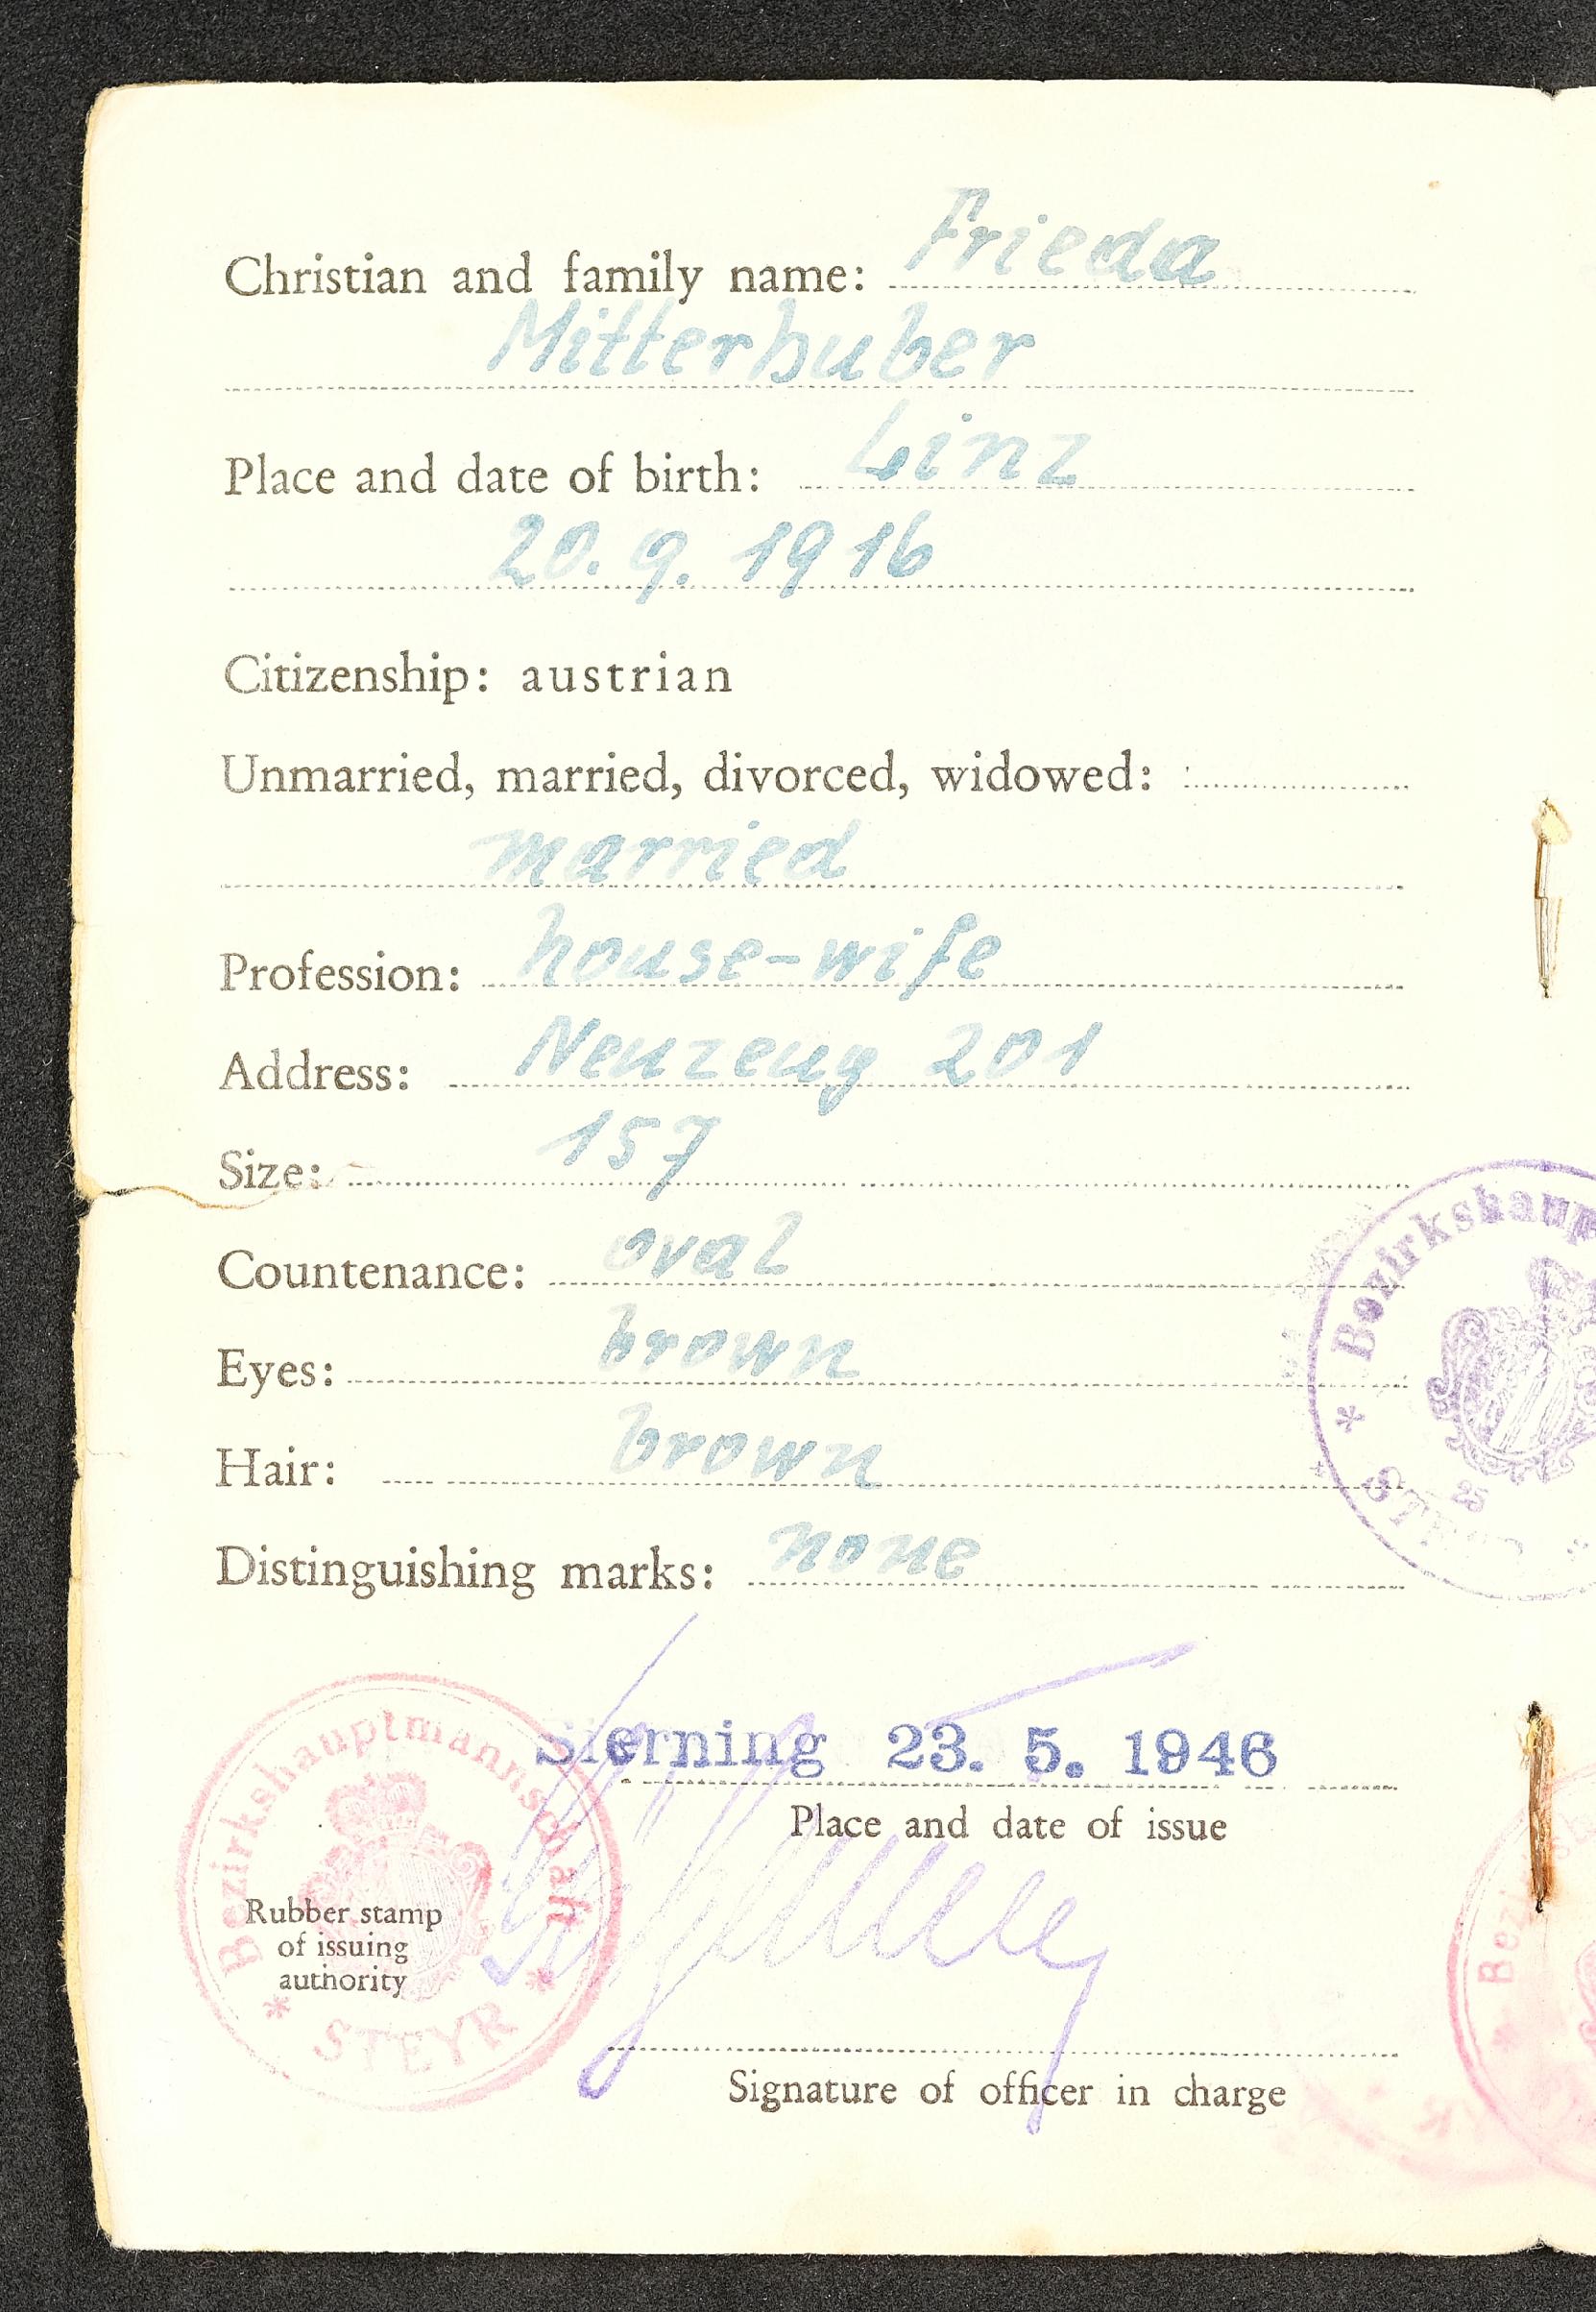 Christian and family name: Frieda
Mitterhuber
Place and date of birth: Linz
20. 9. 1916
Citizenship: austrian
Unmarried, married, divorced, widowed:
married
Profession: house-wife
Address: Neuzeug 201
Size: 157
Countenance: oval
Eyes: brown
Hair: brown
Distinguishing marks: none
Bezirkshaup
STEYR
25
Sierning 23. 5. 1946
Place and date of issue
Bezirkshauptmannschaft
STEYR
Rubber stamp
of issuing
authority
Signature of officer in charge
Bezi